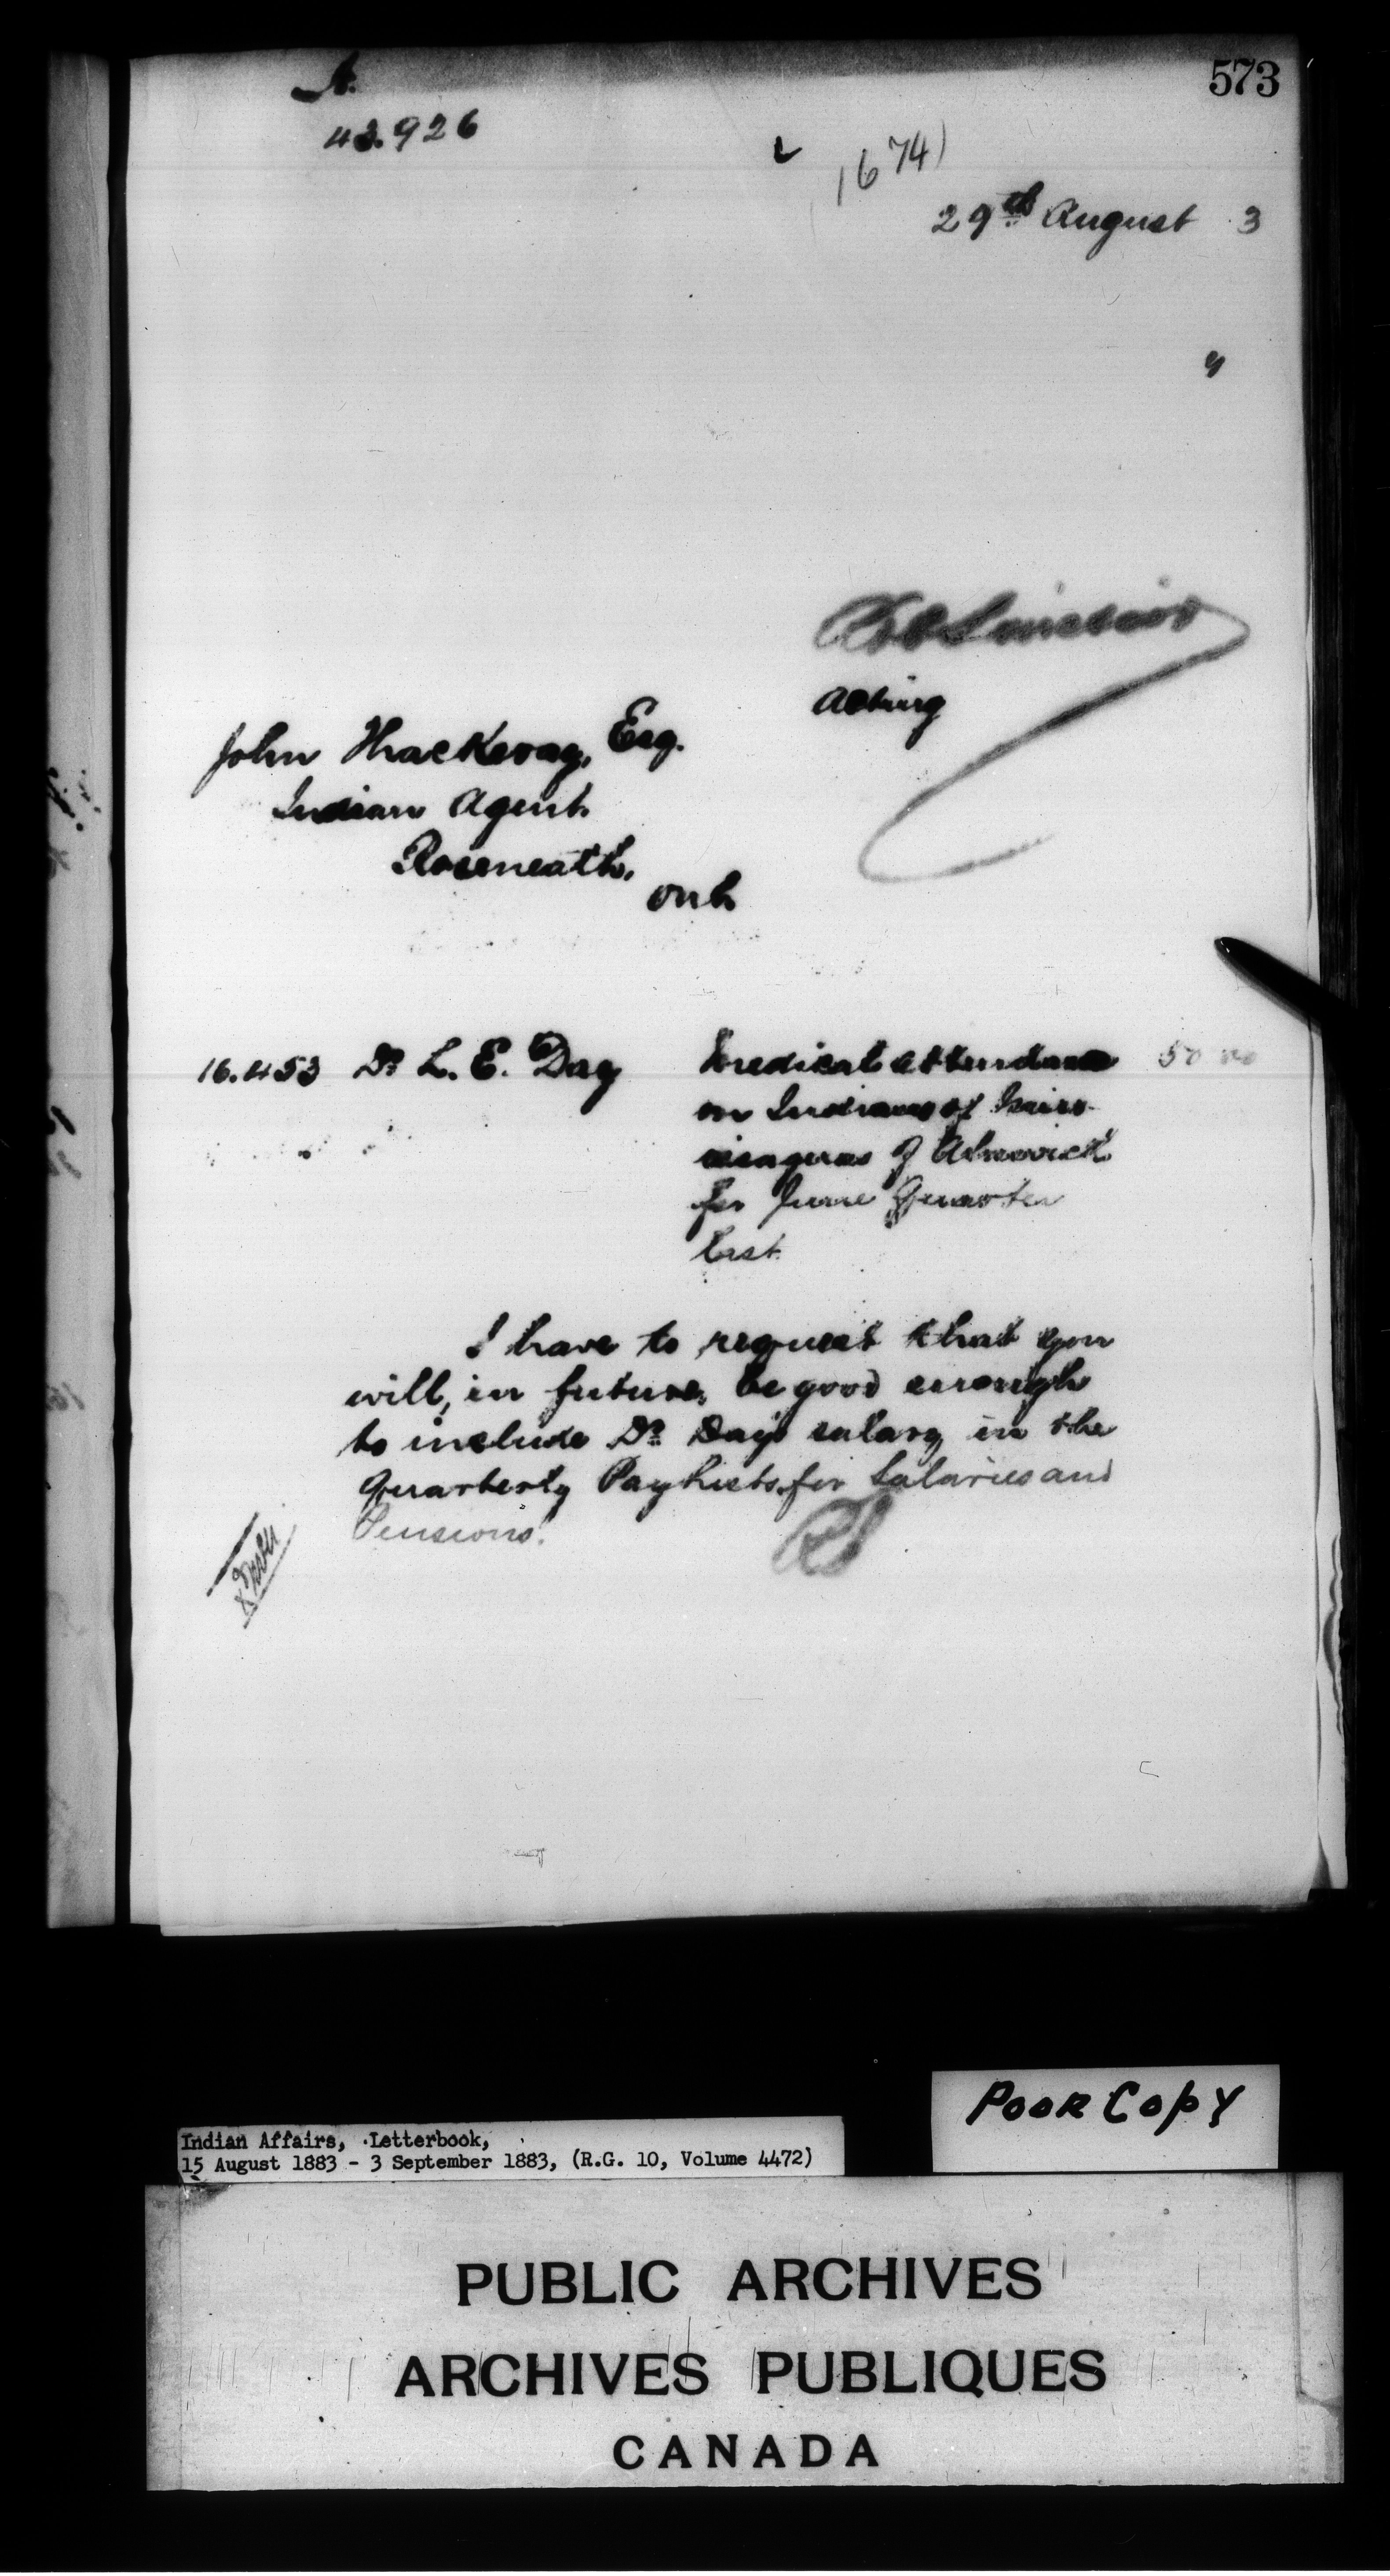 573
A.
43.926
1674)
29th August 3
Acting
John Thackeray, Esq.
Indian Agent.
Roseneath.
Ont.
16.453 Dr L. E. Day Medical attendance 50 00
on Indians of Missis-
saguas of Alnwick
for June Quarter
last.
I have to request that you
will, in future, be good enough
to include Dr. Day's salary in the
Quarterly Pay Lists for Salaries and
Pensions.
RS
Poor Copy
Indian Affairs, Letterbook,
15 August 1883 - 3 September 1883, (R.G. 10, Volume 4472)
PUBLIC ARCHIVES
ARCHIVES PUBLIQUES
CANADA